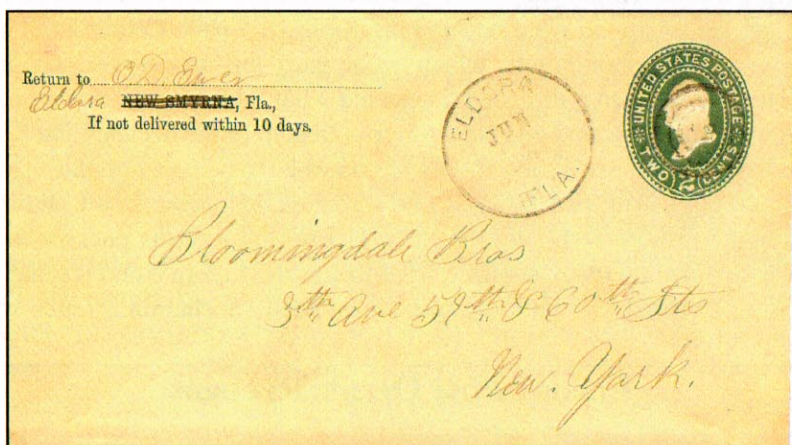 Return to O.D. Ewer
Eldora NEW SMYRNA, Fla.,
If not delivered within 10 days.
ELDORA
JUN
FLA.
UNITED STATES POSTAGE
TWO 2 CENTS
Bloomingdale Bros
3th Ave 59th & 60th Sts
New. York.